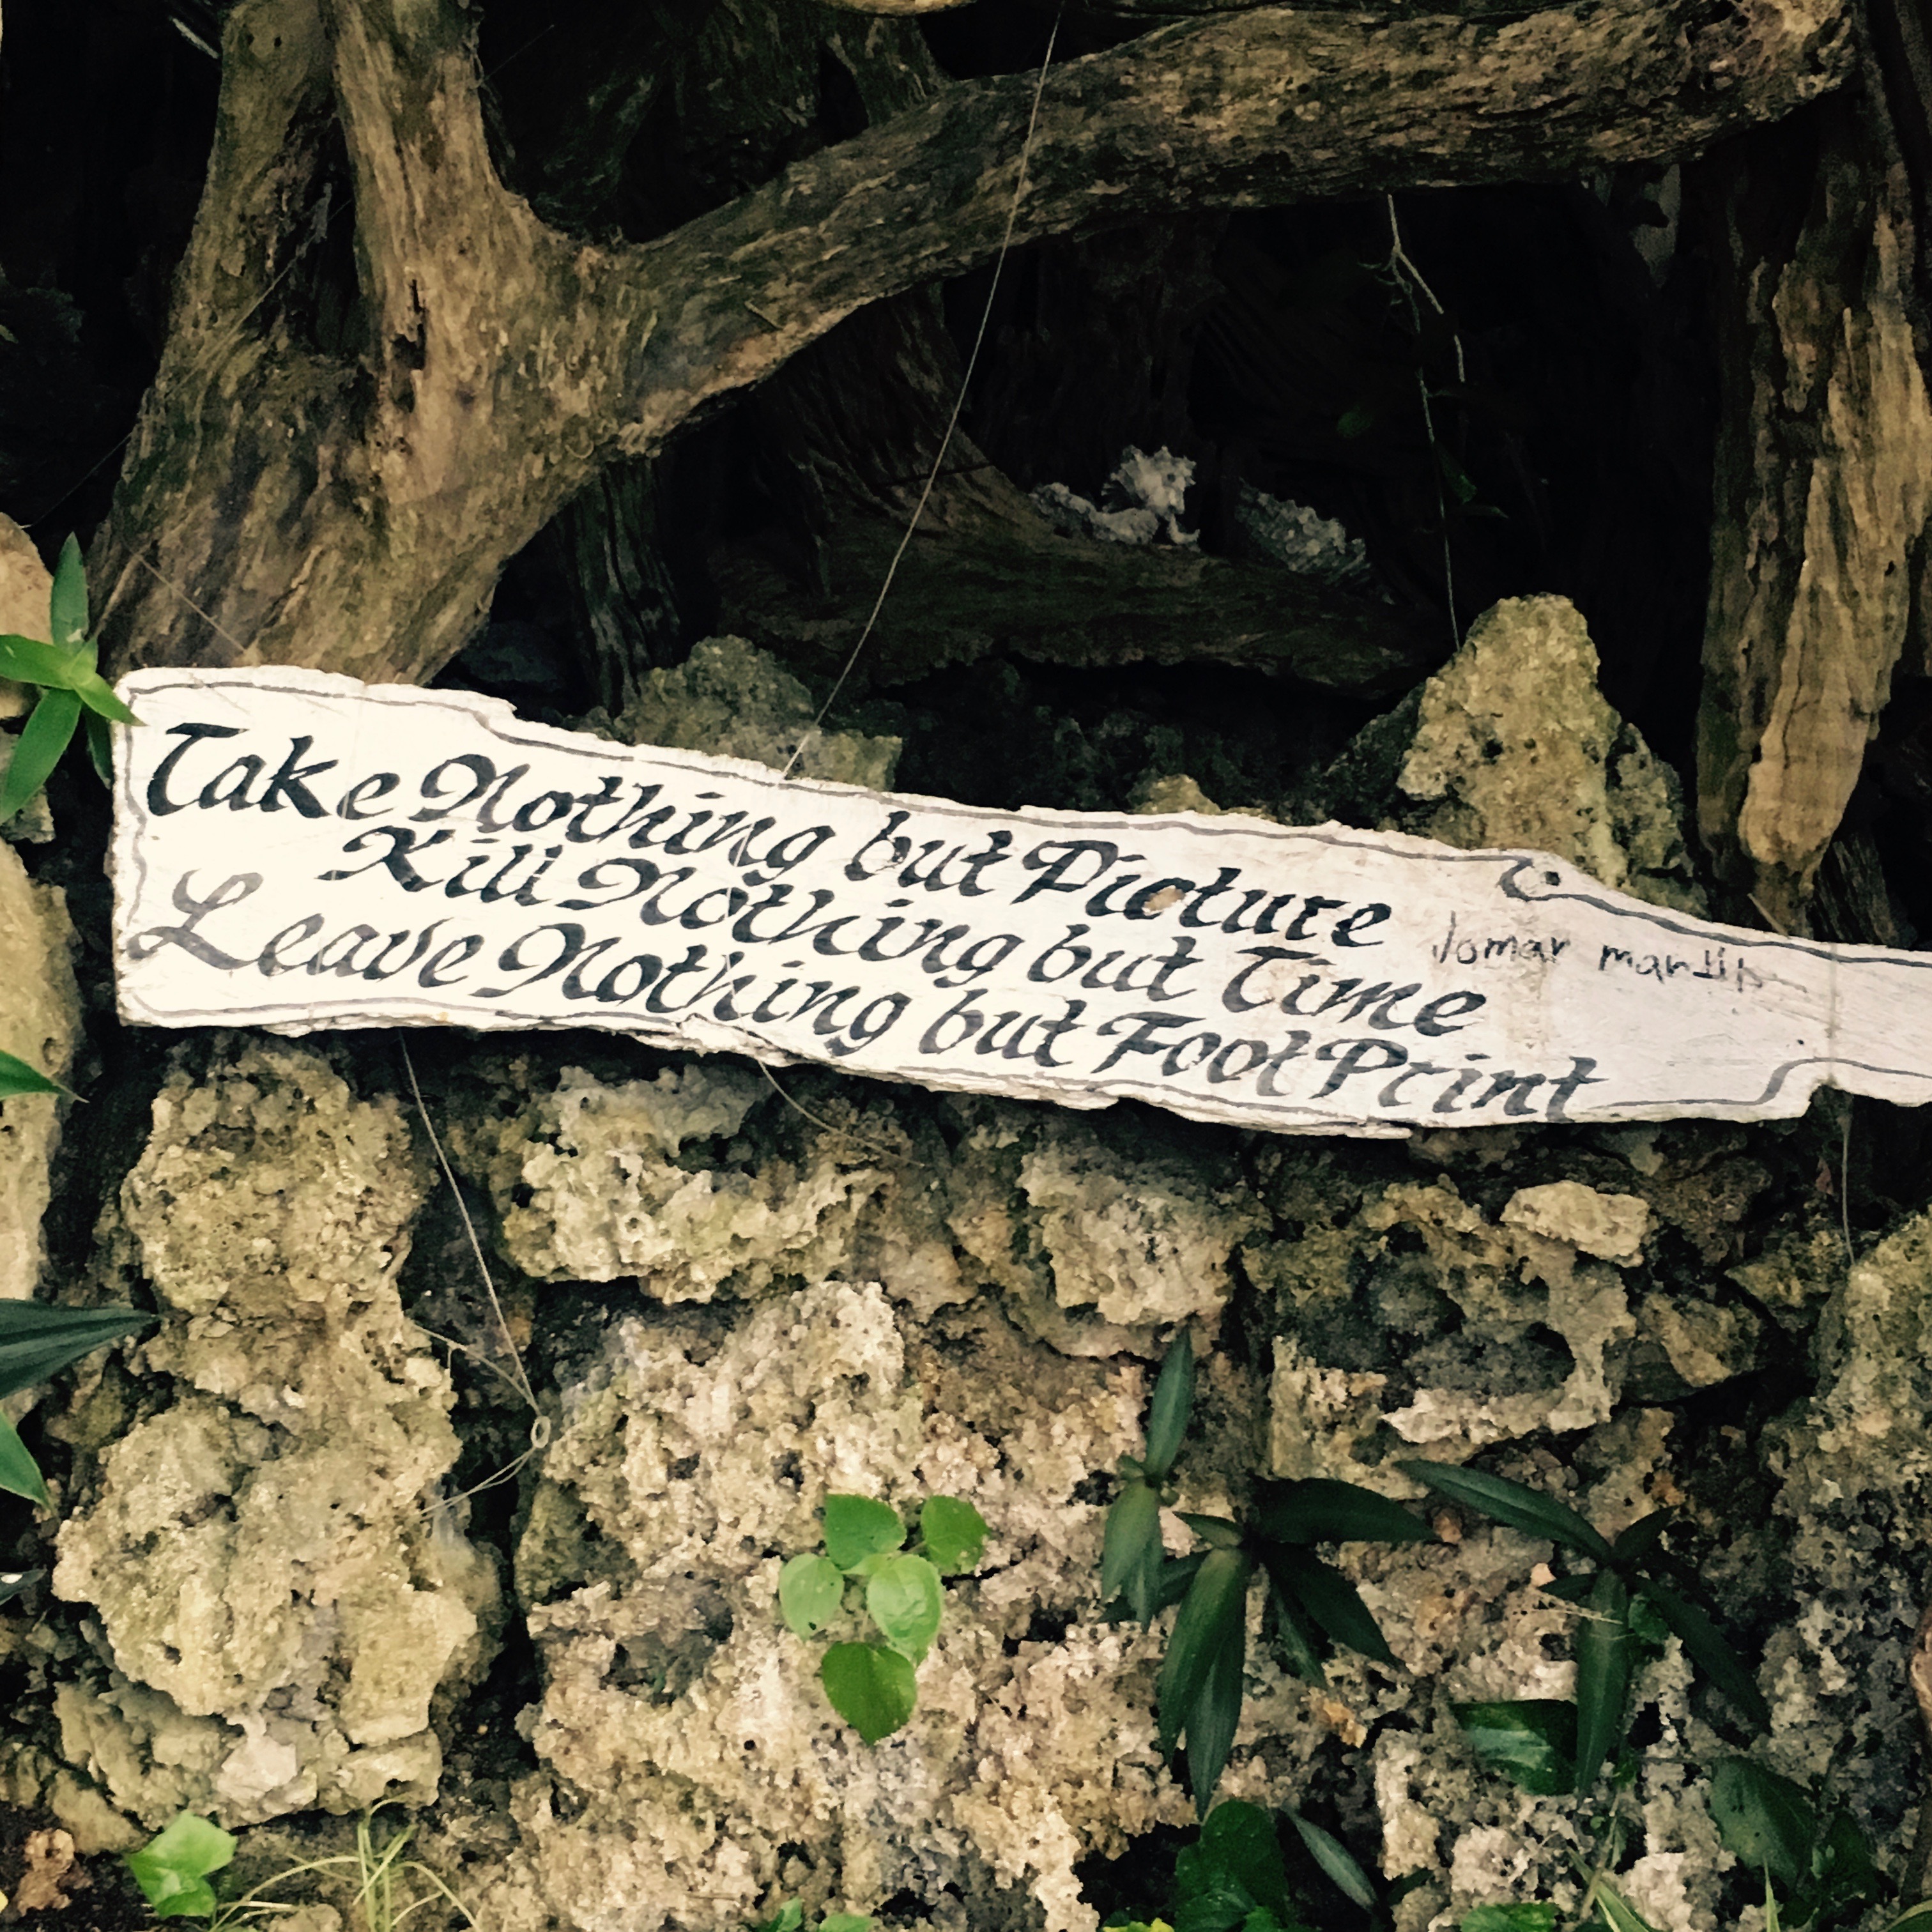 Take Nothing but Picture
Kill Nothing but Time
Leave Nothing but FootPrint
Jomar